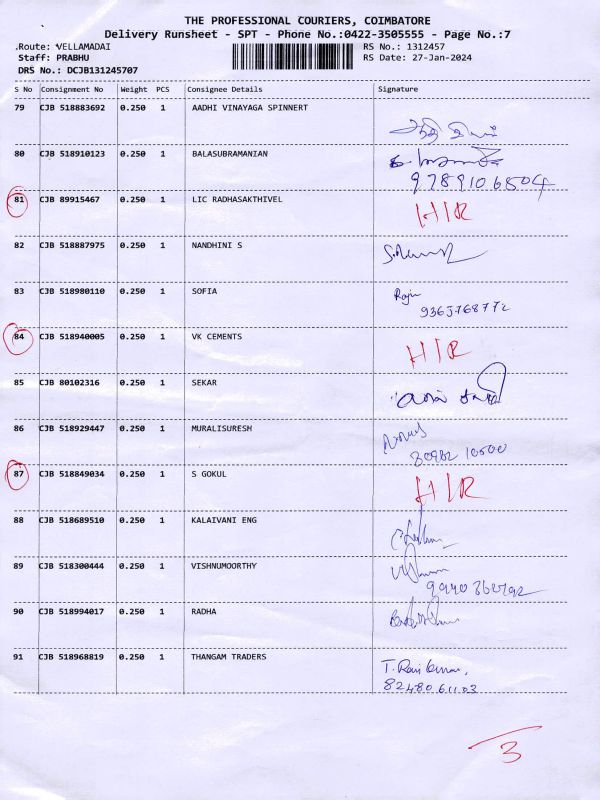 THE PROFESSIONAL COURIERS, COIMBATORE
Delivery Runsheet - SPT - Phone No.:0422-3505555 - Page No.:7
Route: VELLAMADAI RS No.: 1312457
Staff: PRABHU RS Date: 27-Jan-2024
DRS No.: DCJB131245707
S No Consignment No Weight PCS Consignee Details Signature
79 CJB 518883692 0.250 1 AADHI VINAYAGA SPINNERT
80 CJB 518910123 0.250 1 BALASUBRAMANIAN
9789106504
81 CJB 89915467 0.250 1 LIC RADHASAKTHIVEL H/R
82 CJB 518887975 0.250 1 NANDHINI S
83 CJB 518980110 0.250 1 SOFIA Raju
9365768772
84 CJB 518940005 0.250 1 VK CEMENTS H/R
85 CJB 80102316 0.250 1 SEKAR
86 CJB 518929447 0.250 1 MURALISURESH
87 CJB 518849034 0.250 1 S GOKUL H/R
88 CJB 518689510 0.250 1 KALAIVANI ENG
89 CJB 518300444 0.250 1 VISHNUMOORTHY
90 CJB 518994017 0.250 1 RADHA
91 CJB 518968819 0.250 1 THANGAM TRADERS T. Ravikumar,
82480 61103
3